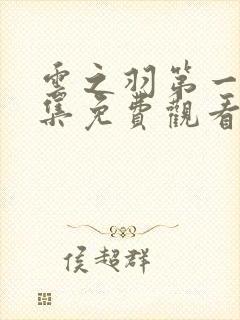 雲之羽第一
集免費觀看
侯超群